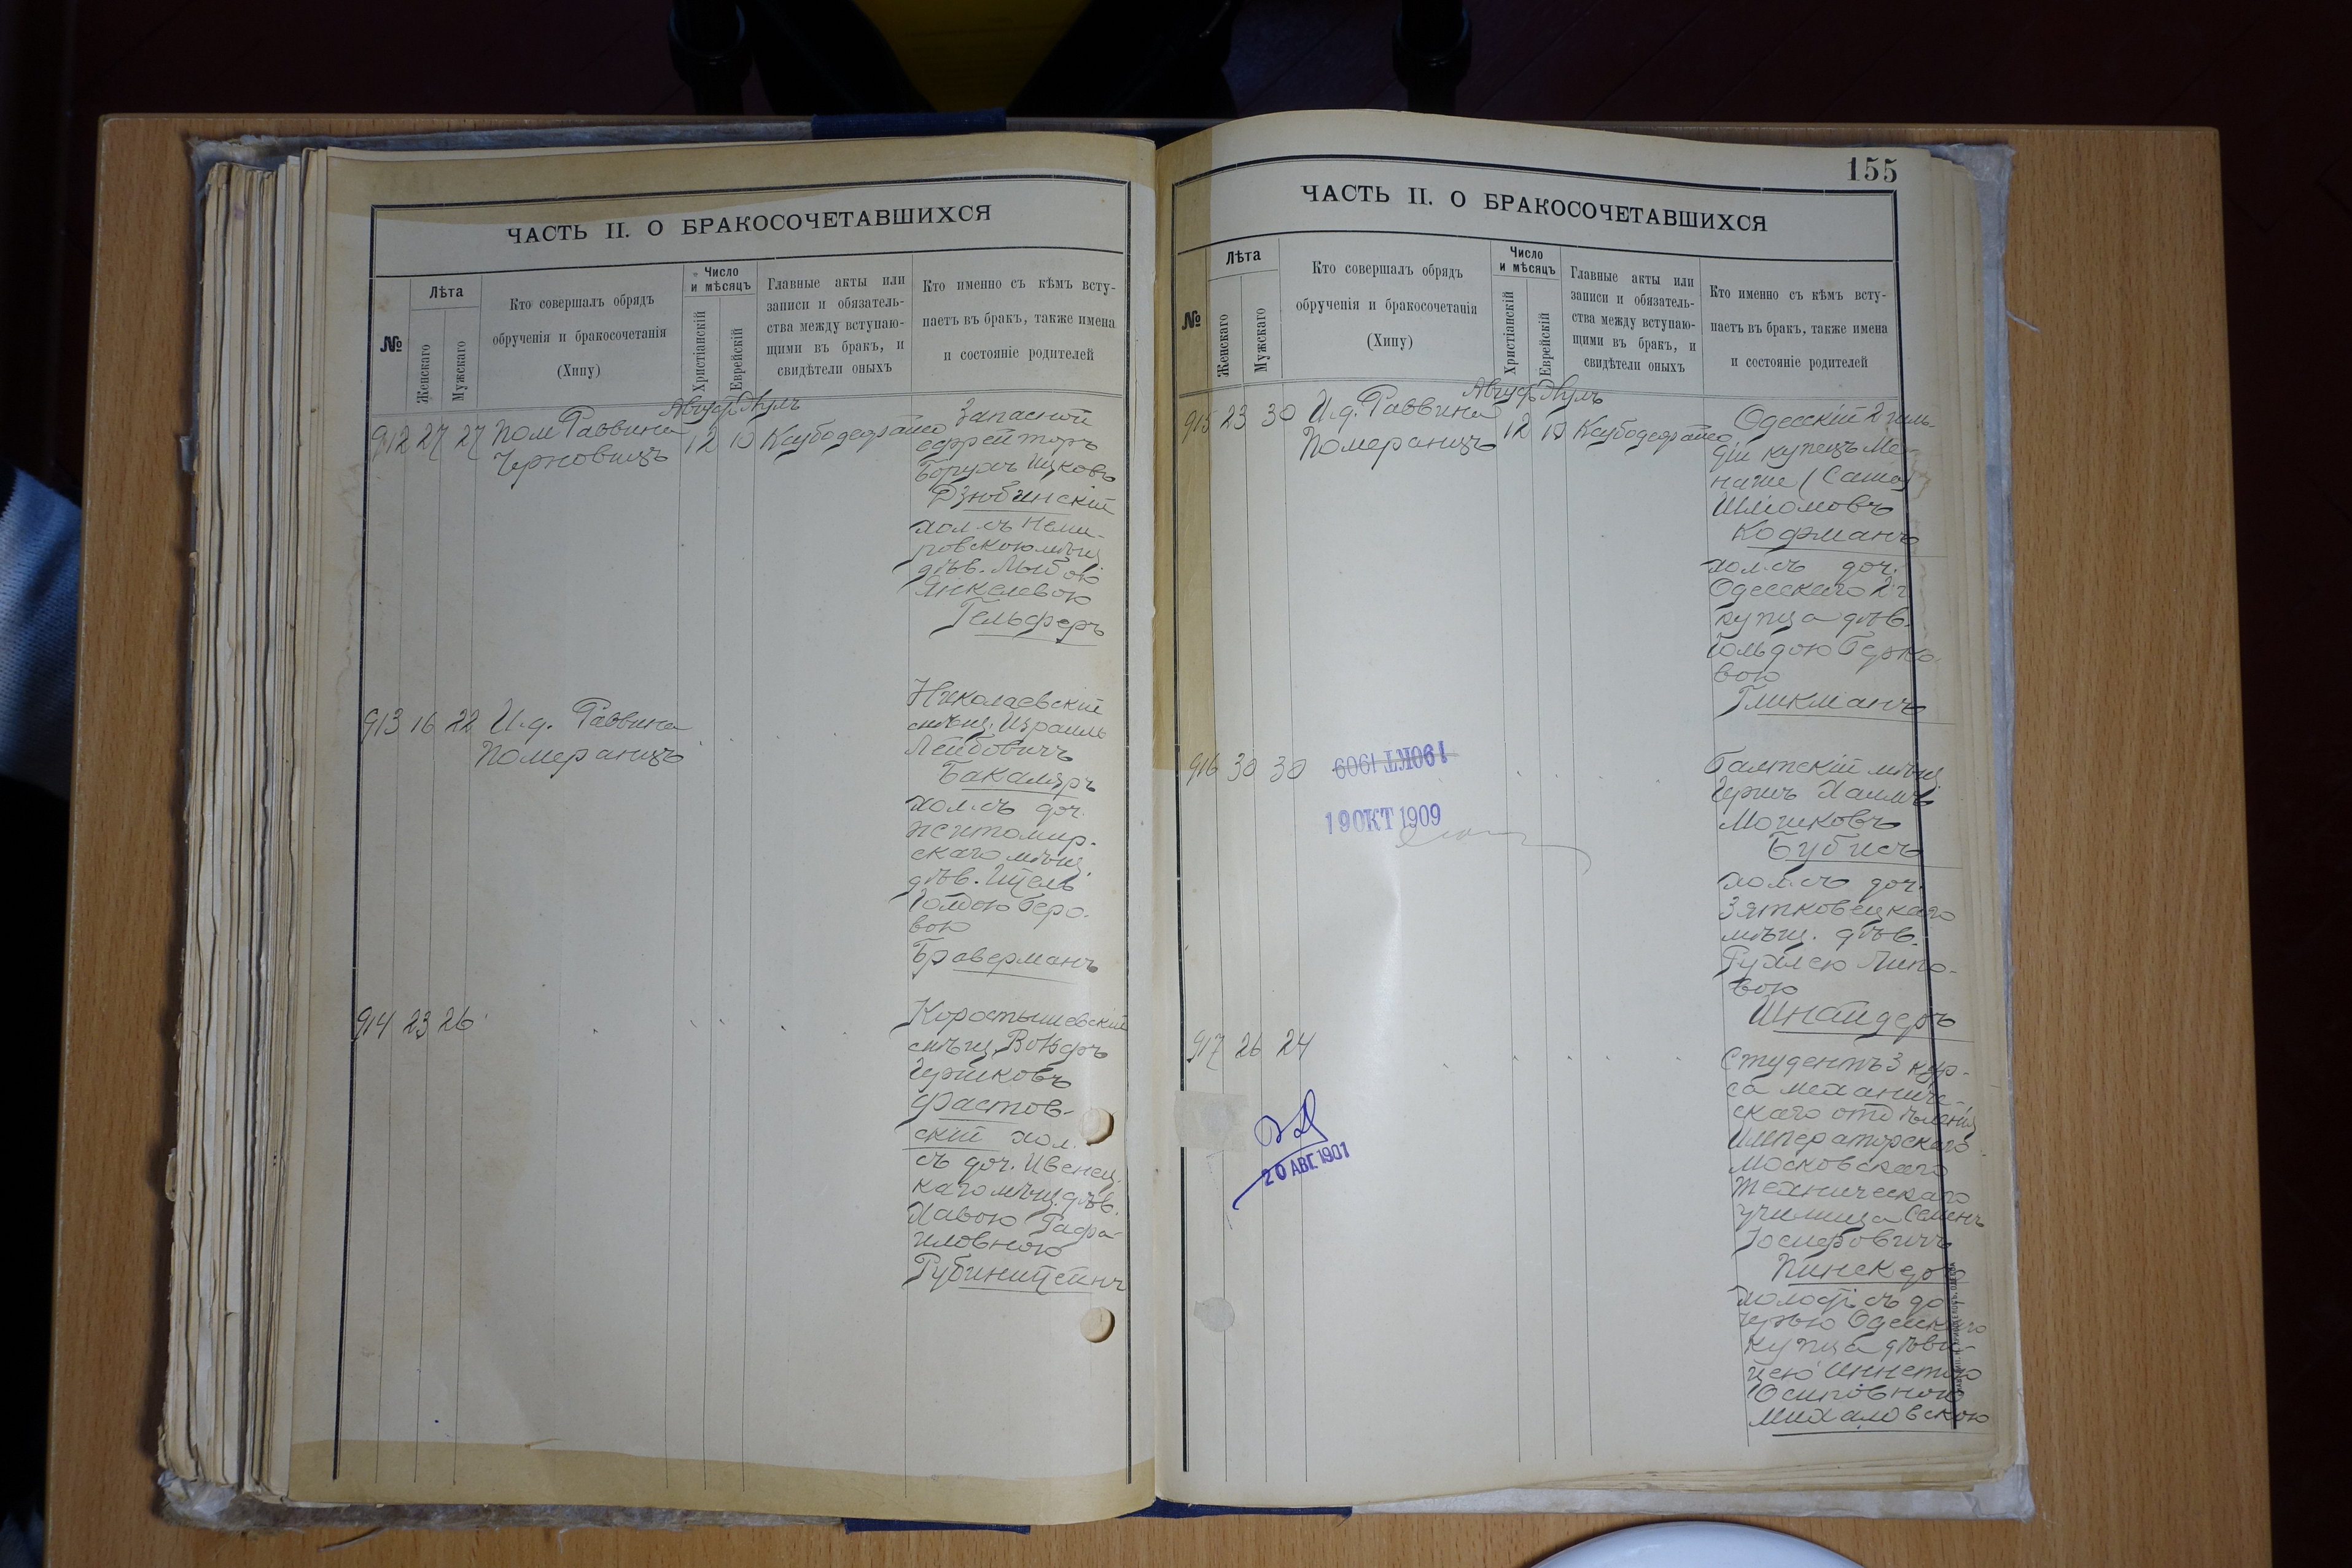 ЧАСТЬ II. О БРАКОСОЧЕТАВШИХСЯ
№
Лѣта
Женскаго
Мужскаго
Кто совершалъ обрядъ
обрученія и бракосочетанія
(Хипу)
Число
и мѣсяцъ
Христіанскій
Еврейскій
Главные акты или
записи и обязатель-
ства между вступаю-
щими въ бракъ, и
свидѣтели оныхъ
Кто именно съ кѣмъ всту-
паетъ въ бракъ, также имена
и состояніе родителей
912 27 27 Пом Раввина
Черновицъ
12 10
Запасной
ефрейторъ
Борухъ Ицковъ
Дзюбинскій
хол. съ Неми-
ровскою мѣщ.
дѣв.
Янкелевою
Гельферъ
913 16 22 И.д. Раввина
Померанцъ
Николаевскій
мѣщ. Израиль
Лейбовичъ
Бакаляръ
хол. съ доч.
Житомир-
скаго мѣщ.
дѣв.
вою
Браверманъ
914 23 26
Коростышевскій
мѣщ.
Фастов-
скій хол.
съ доч. Ивенец-
каго мѣщ. дѣв.
Хавою Рафа-
иловною
Рубинштейнъ
155
ЧАСТЬ II. О БРАКОСОЧЕТАВШИХСЯ
№
Лѣта
Женскаго
Мужскаго
Кто совершалъ обрядъ
обрученія и бракосочетанія
(Хипу)
Число
и мѣсяцъ
Христіанскій
Еврейскій
Главные акты или
записи и обязатель-
ства между вступаю-
щими въ бракъ, и
свидѣтели оныхъ
Кто именно съ кѣмъ всту-
паетъ въ бракъ, также имена
и состояніе родителей
915 23 30 И.д. Раввина
Померанцъ
12 10
Одесскій 2 гиль-
діи купецъ Ме-
наше (Саша)
Шліомовъ
Кофманъ
хол. съ доч.
Одесскаго 2 г.
купца дѣв.
Гольдою Берко-
вою
Гликманъ
916 30 30
19 ОКТ 1909
19 ОКТ 1909
Балтскій мѣщ.
Гершъ Хаимъ
Мошковъ
Бубисъ
хол. съ доч.
Зятковецкаго
мѣщ. дѣв.
Рухлею Липо-
вою
Шнайдеръ
917 26 24
20 АВГ 1901
Студентъ 3 кур-
са механиче-
скаго отдѣленія
Императорскаго
Московскаго
Техническаго
училища Семенъ
Іосифовичъ
Пинскеръ
холост. съ до-
черью Одесскаго
купца дѣви-
цею Аннетою
Осиповною
Михаловскою